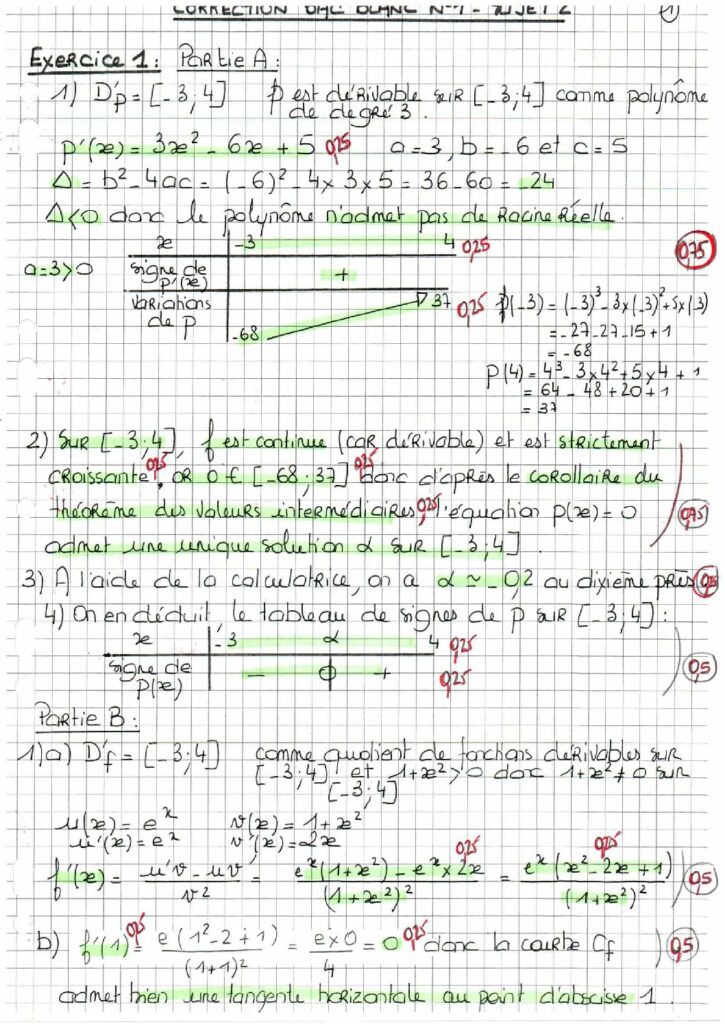 CORRECTION BAC BLANC N°1 - SUJET 2 (1)
Exercice 1 : Partie A :
1) D'p = [-3 ; 4] p est dérivable sur [-3 ; 4] comme polynôme
de degré 3.
p'(x) = 3x² - 6x + 5 0,25 a = 3, b = -6 et c = 5
Δ = b² - 4ac = (-6)² - 4 × 3 × 5 = 36 - 60 = -24
Δ < 0 donc le polynôme n'admet pas de racine réelle.
x -3 4 0,25 0,75
a = 3 > 0 signe de p'(x) +
variations de p -68 37 0,25 p(-3) = (-3)³ - 3 × (-3)² + 5 × (-3)
= -27 - 27 - 15 + 1
= -68
p(4) = 4³ - 3 × 4² + 5 × 4 + 1
= 64 - 48 + 20 + 1
= 37
2) Sur [-3 ; 4], f est continue (car dérivable) et est strictement
croissante 0,25. or 0 ∈ [-68 ; 37] 0,25 donc d'après le corollaire du
théorème des valeurs intermédiaires, 0,25 l'équation p(x) = 0 0,75
admet une unique solution α sur [-3 ; 4].
3) A l'aide de la calculatrice, on a α ≃ -0,2 au dixième près 0,5
4) On en déduit le tableau de signes de p sur [-3 ; 4] :
x -3 α 4 0,25
signe de p(x) - 0 + 0,25 0,5
Partie B :
1) a) D'f = [-3 ; 4] comme quotient de fonctions dérivables sur
[-3 ; 4] et 1 + x² > 0 donc 1 + x² ≠ 0 sur
[-3 ; 4]
u(x) = eˣ v(x) = 1 + x²
u'(x) = eˣ v'(x) = 2x
f'(x) = (u'v - uv')/v² = (eˣ(1 + x²) - eˣ × 2x)/(1 + x²)² 0,25 = eˣ(x² - 2x + 1)/(1 + x²)² 0,25 0,5
b) f'(1) 0,25 = e(1² - 2 + 1)/(1 + 1)² = e × 0/4 = 0 0,25 donc la courbe Cf 0,5
admet bien une tangente horizontale au point d'abscisse 1.